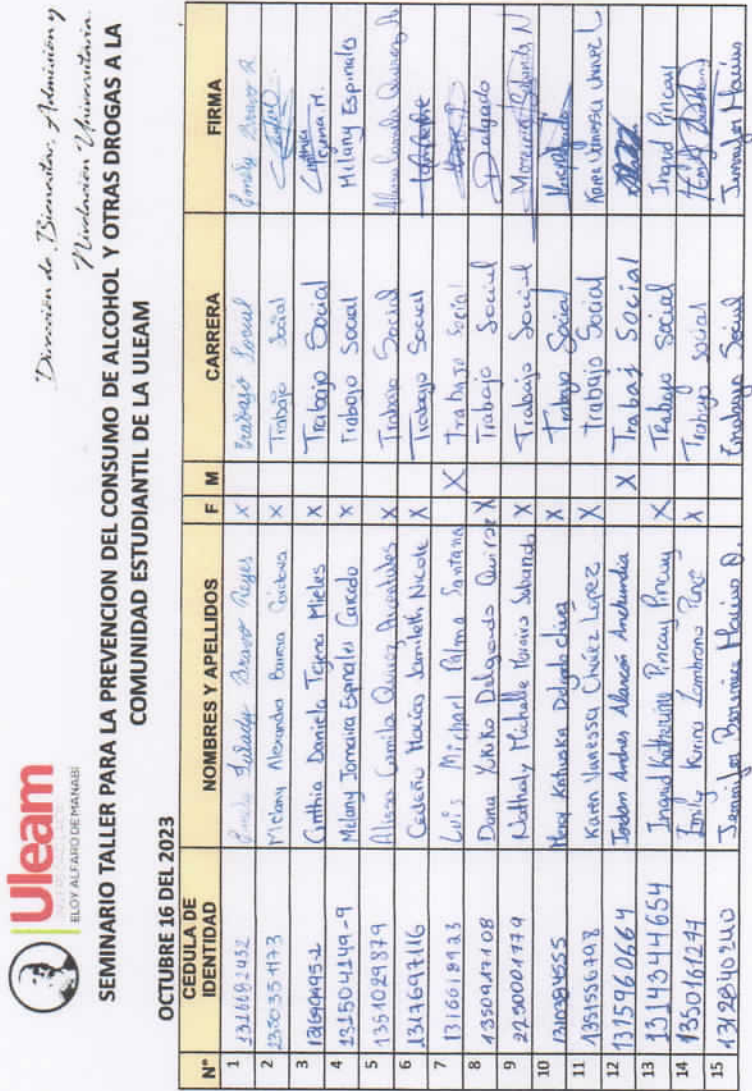 Uleam
UNIVERSIDAD LAICA
ELOY ALFARO DE MANABÍ
Dirección de Bienestar, Admisión y
Nivelación Universitaria
SEMINARIO TALLER PARA LA PREVENCION DEL CONSUMO DE ALCOHOL Y OTRAS DROGAS A LA
COMUNIDAD ESTUDIANTIL DE LA ULEAM
OCTUBRE 16 DEL 2023
N° CEDULA DE IDENTIDAD NOMBRES Y APELLIDOS F M CARRERA FIRMA
1 Bravo Reyes X Trabajo Social Emily Bravo R
2 Melany Alexandra Barrera Córdova X Trabajo Social
3 Cinthia Daniela Tejena Mieles X Trabajo Social Cinthia Tejena M.
4 131504149-9 Melany Jomaira Espinales Caicedo X Trabajo Social Melany Espinales
5 1351029879 Camila Quiroz X Trabajo Social
6 1317697116 Cedeño Macías Jamileth Nicole X Trabajo Social
7 1316618923 Luis Michael Palma Santana X Trabajo Social
8 1350917108 Dana Yukiko Delgado Quiroz X Trabajo Social Delgado
9 2250001179 Nathaly Michelle Moreira Sabando X Trabajo Social Moreira Sabando N
10 Delgado Chávez X Trabajo Social
11 1351556798 Karen Vanessa Chávez López X Trabajo Social Karen Vanessa Chávez L
12 1315960664 Andres Alarcón Anchundia X Trabaj Social
13 1314344654 Ingrid Katherine Pincay Pincay X Trabajo Social Ingrid Pincay
14 1350161277 Emily Karina Zambrano X Trabajo social
15 1312840240 Jennifer Berenice Macias D. Trabajo Social Jennifer Macias